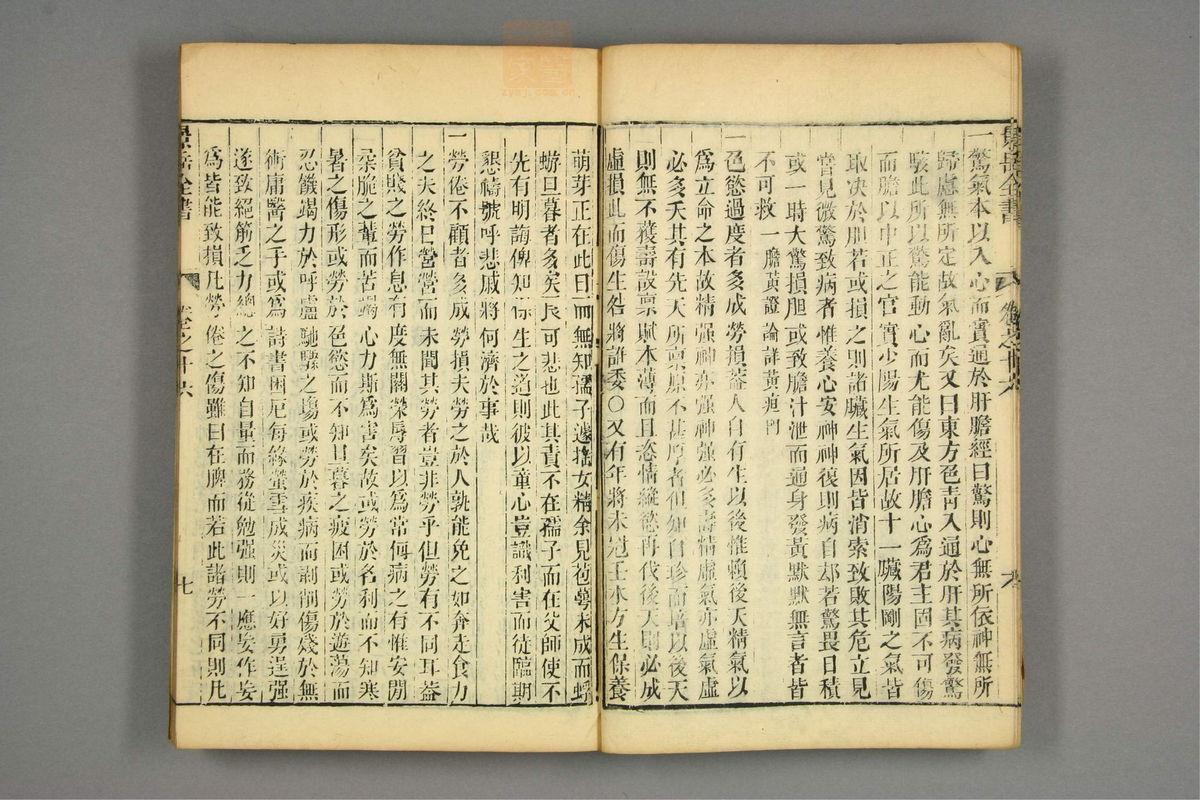 景岳全書
卷之十六
一驚氣本以入心而實通於肝膽經曰驚則心無所依神無所
歸慮無所定故氣亂矣又曰東方色靑入通於肝其病發驚
駭此所以驚能動心而尤能傷及肝膽心爲君主固不可傷
而膽以中正之官實少陽生氣所居故十一臟陽剛之氣皆
取决於胆若或損之則諸臟生氣因皆消索致敗其危立見
嘗見微驚致病者惟養心安神神復則病自却若驚畏日積
或一時大驚損胆或致膽汁泄而通身發黃默默無言者皆
不可救一膽黃證論詳黃疸門
一色慾過度者多成勞損葢人自有生以後惟賴後天精氣以
爲立命之本故精强神亦强神强必多壽精虛氣亦虛氣虛
必多夭其有先天所禀原不甚厚者但知自珍而培以後天
則無不獲壽設禀賦本薄而且恣情縱慾再伐後天則必成
虛損此而傷生咎將誰委○又有年將未冠壬水方生保養
萌芽正在此日而無知孺子遽搖女精余見苞萼未成而蜉
蝣旦暮者多矣良可悲也此其責不在孺子而在父師使不
先有明誨俾知保生之道則彼以童心豈識利害而徒臨期
懇禱號呼悲戚將何濟於事哉
一勞倦不顧者多成勞損夫勞之於人孰能免之如奔走食力
之夫終日營營而未聞其勞者豈非勞乎但勞有不同耳葢
貧賤之勞作息有度無關榮辱習以爲常何病之有惟安閒
柔脆之輩而苦竭心力斯爲害矣故或勞於名利而不知寒
暑之傷形或勞於色慾而不知旦暮之疲困或勞於遊蕩而
忍饑竭力於呼盧馳驟之塲或勞於疾病而剥削傷殘於無
術庸醫之手或爲詩書困厄每緣螢雪成災或以好勇逞强
遂致絕筋乏力總之不知自量而務從勉强則一應妄作妄
爲皆能致損凡勞倦之傷雖曰在脾而若此諸勞不同則凡
景岳全書
卷之十六
七